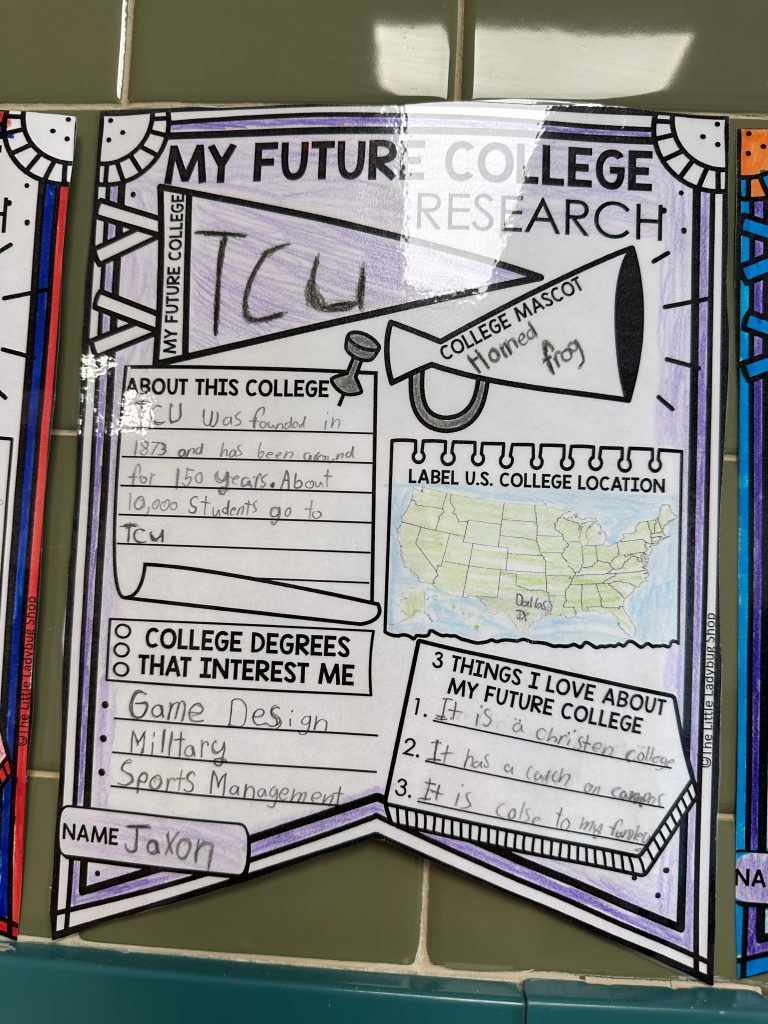 MY FUTURE COLLEGE
RESEARCH
MY FUTURE COLLEGE
TCU
COLLEGE MASCOT
Horned
frog
ABOUT THIS COLLEGE
TCU was founded in
1873 and has been around
for 150 years. About
10,000 Students go to
TCU
LABEL U.S. COLLEGE LOCATION
Dallas
TX
COLLEGE DEGREES
THAT INTEREST ME
Game Design
Milltary
Sports Management
3 THINGS I LOVE ABOUT
MY FUTURE COLLEGE
1. It is a christen college
2. It has a on
3. It is colse to my
NAME Jaxon
©The Little Ladybug Shop
©The Little Ladybug Shop
H
NA